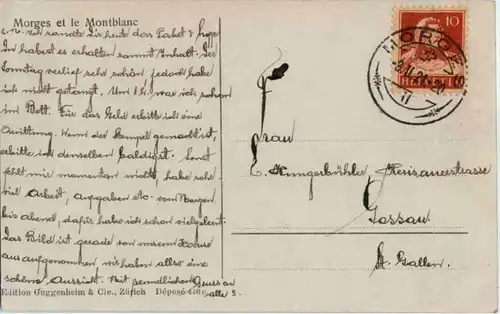 Morges et le Montblanc
L. M. Ich sandte Dir heute das Paket & hoffe
Du habest es erhalten sammt Inhalt. Der
Sonntag verlief sehr schön jedoch habe
ich nicht getanzt. Um 1 h. war ich schon
im Bett. Für das Geld erbitte ich eine
Quittung. Wenn der Stempel gemacht ist,
erbitte ich denselben baldigst. Sonst
fehlt mir momentan nichts, habe sehr
viel Arbeit, Aufgaben etc. vom Morgen
bis abend, dafür habe ich schon viel gelernt.
Das Bild ist gerade von unserm Hause
aus aufgenommen, wir haben also eine
schöne Aussicht. Mit freundlichen Gruss an
alle
Edition Guggenheim & Cie., Zürich Déposé
10
MORGES
HELVETIA
Frau
E. Hungerbühler Herisauerstrasse
Gossau
St. Gallen.